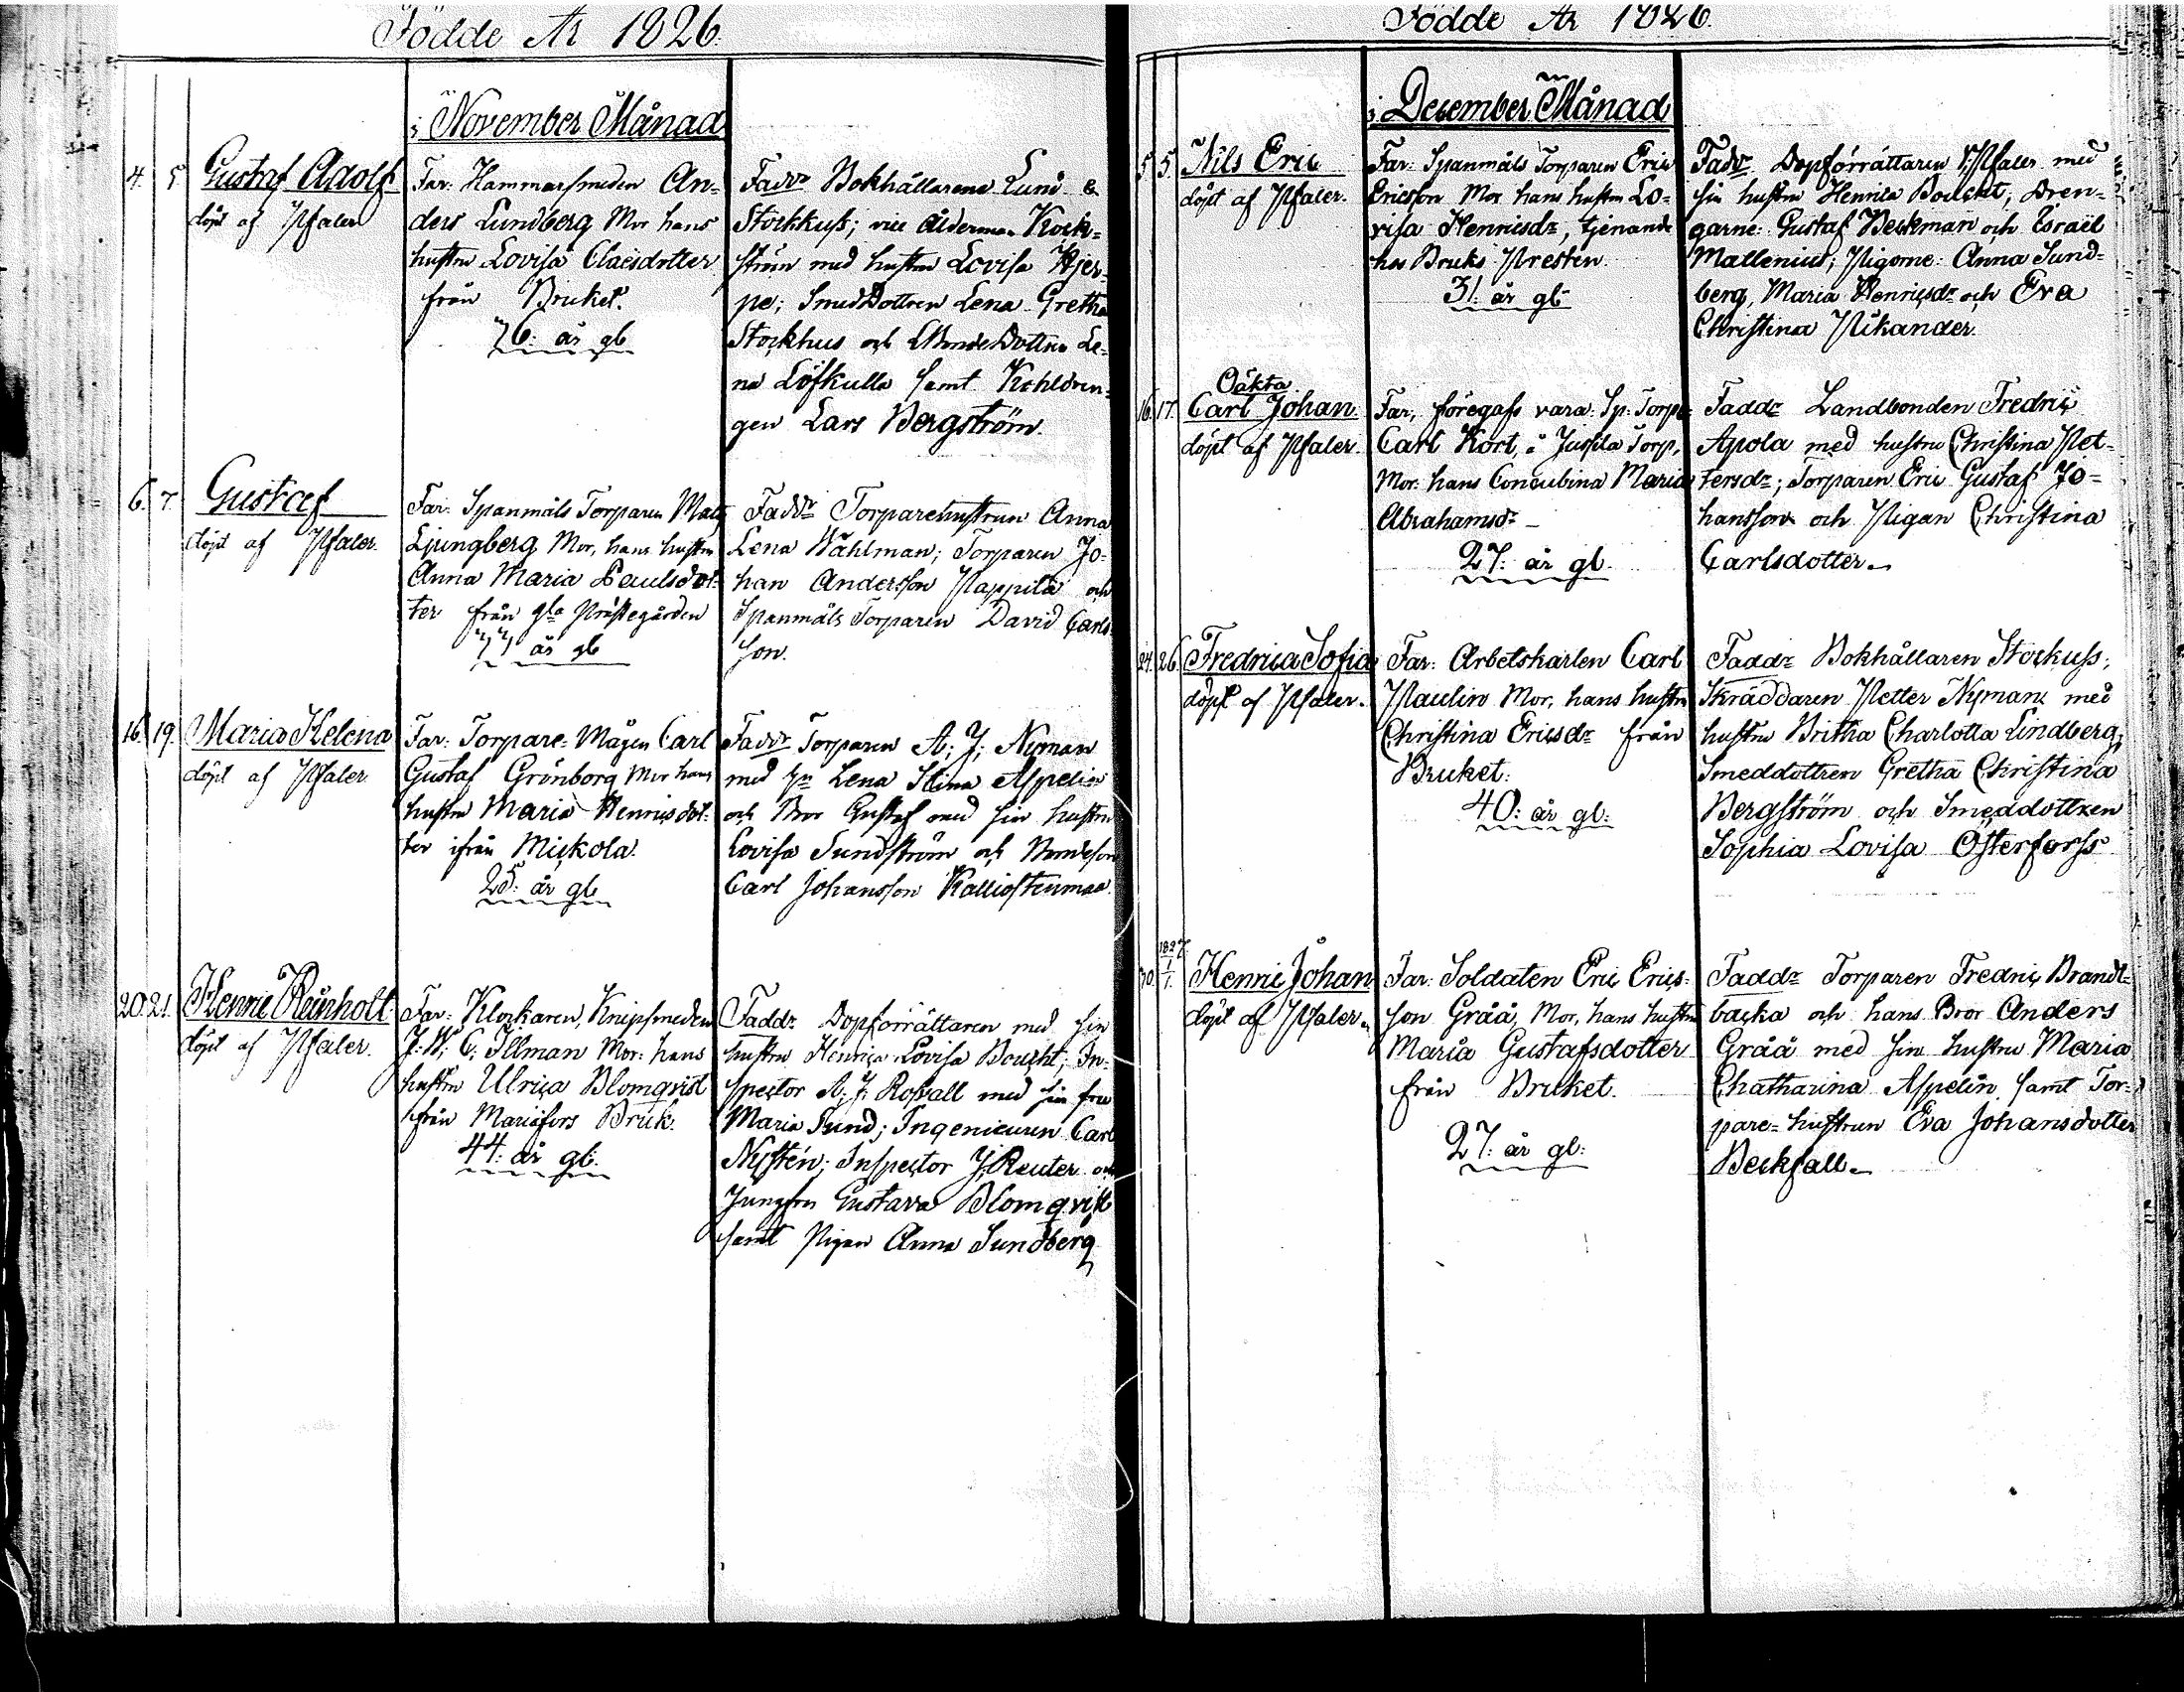 Födde År 1826.
i November Månad
4. 5. Gustaf Adolf
döpt af Pfaler
Far: Hammarsmeden An-
ders Lundberg Mor hans
hustru Lovisa Claesdotter
från Bruket.
26: år gl
Faddr Bokhållarena Lund &
Stockkuss; vice Ålderman Kock-
ström med hustru Lovisa Hjer-
pe; Smeddottren Lena Gretha
Stockhus och Bondedottren Le-
na Löfkulla samt Kohldren-
gen Lars Bergström.
6. 7. Gustaf
döpt af Pfaler.
Far: Spanmåls Torparen Mats
Ljungberg Mor, hans hustru
Anna Maria Paulsdot-
ter från gla Prästegården
år gl
Faddr Torparehustrun Anna
Lena Wåhlman; Torparen Jo-
han Andersson Pappila och
Spanmåls Torparen David Carls-
son.
16. 19. Maria Helena
döpt af Pfaler
Far: Torpare-Mågen Carl
Gustaf Grönborg Mor hans
hustru Maria Henricsdot-
ter ifrån Miskola.
25: år gl
Faddr Torparen A: J: Nyman
med Lena Stina Aspelin
och Bror Gustaf med sin hustru
Lovisa Sundström och Bondeson
Carl Johansson Kalliostenmaa.
20. 21. Henric Reinholt
döpt af Pfaler.
Far: Klockaren, Knipsmeden
J: W: C: Illman Mor: hans
hustru Ulrica Blomqvist
ifrån Mariæfors Bruk.
44: år gl:
Faddr Dopförrättaren med sin
hustru Henrica Lovisa Boucht; In-
spector A: J: Rosvall med sin fru
Maria Sund; Ingenieuren Carl
Nystén; Inspector J: Reuter och
Jungfru Gustava Blomqvist
samt Pigan Anna Sundberg
Födde År 1826.
i December Månad
5. 5. Nils Eric
döpt af Pfaler.
Far: Spanmåls Torparen Eric
Ericsson Mor hans hustru Lo-
visa Henricsdr, tjenande
hos Bruks Presten.
31: år gl
Faddr Dopförrättaren Pfaler med
sin hustru Henrica Boucht; Dren-
garne: Gustaf Beckman och Esraël
Mallenius; Pigorne: Anna Sund-
berg, Maria Henricsdr och Eva
Christina Nikander.
Oäkta
16. 17. Carl Johan
döpt af Pfaler.
Far, föregafs vara: Sp: Torp:
Carl Kort, å Jussila Torp,
Mor: hans Concubina Maria
Abrahamsdr –
27: år gl.
Faddr Landbonden Fredric
Apola med hustru Christina Pet-
tersdr; Torparen Eric Gustaf Jo-
hansson och Pigan Christina
Carlsdotter.
24. 26. Fredrica Sofia
döpt af Pfaler.
Far: Arbetskarlen Carl
Paulin Mor, hans hustru
Christina Ericsdr från
Bruket:
40: år gl:
Faddr Bokhållaren Stockuss;
Skräddaren Petter Nyman med
hustru Britha Charlotta Lindberg;
Smeddottren Gretha Christina
Bergström och Smeddottren
Sophia Lovisa Österforss
1827
30. 1/1. Henric Johan
döpt af Pfaler.
Far: Soldaten Eric Erics-
son Gråå, Mor, hans hustru
Maria Gustafsdotter
från Bruket.
27: år gl:
Faddr Torparen Fredric Brandt-
backa och hans Bror Anders
Gråå med sin hustru Maria
Chatharina Aspelin samt Tor-
pare-hustrun Eva Johansdotter
Beckfall.